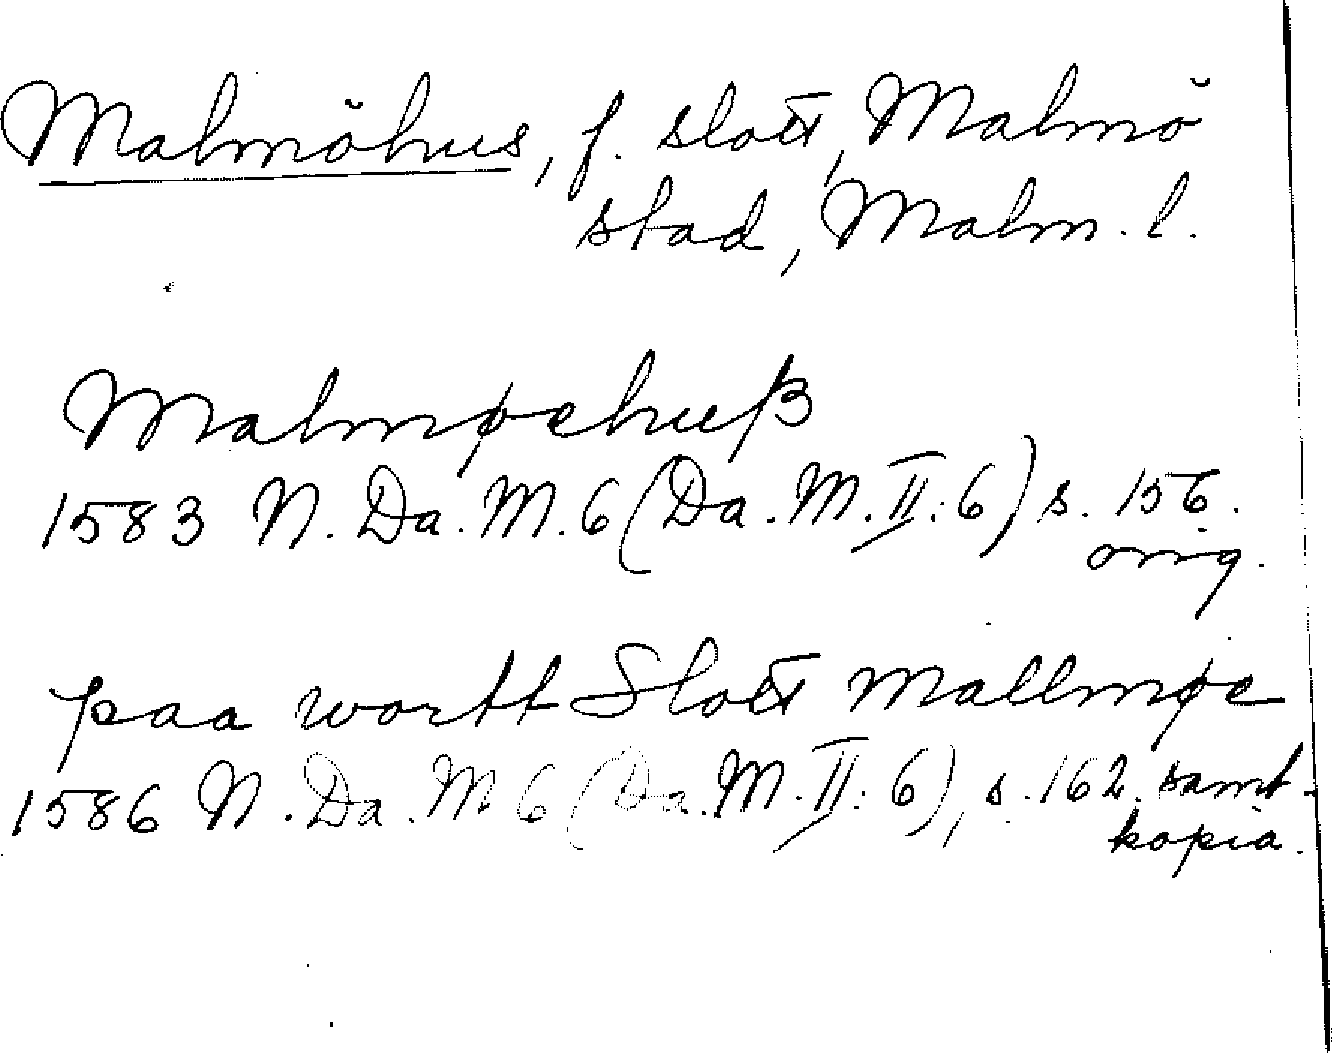 Malmöhus, f. slott, Malmö
stad, Malm. l.
Malmøehuß
1583 N. Da. M. 6 (Da. M. II: 6) s. 156.
orig.
paa wortt Slott Mallmøe
1586 N. Da. M 6 (Da. M. II: 6), s. 162. samt.
kopia.